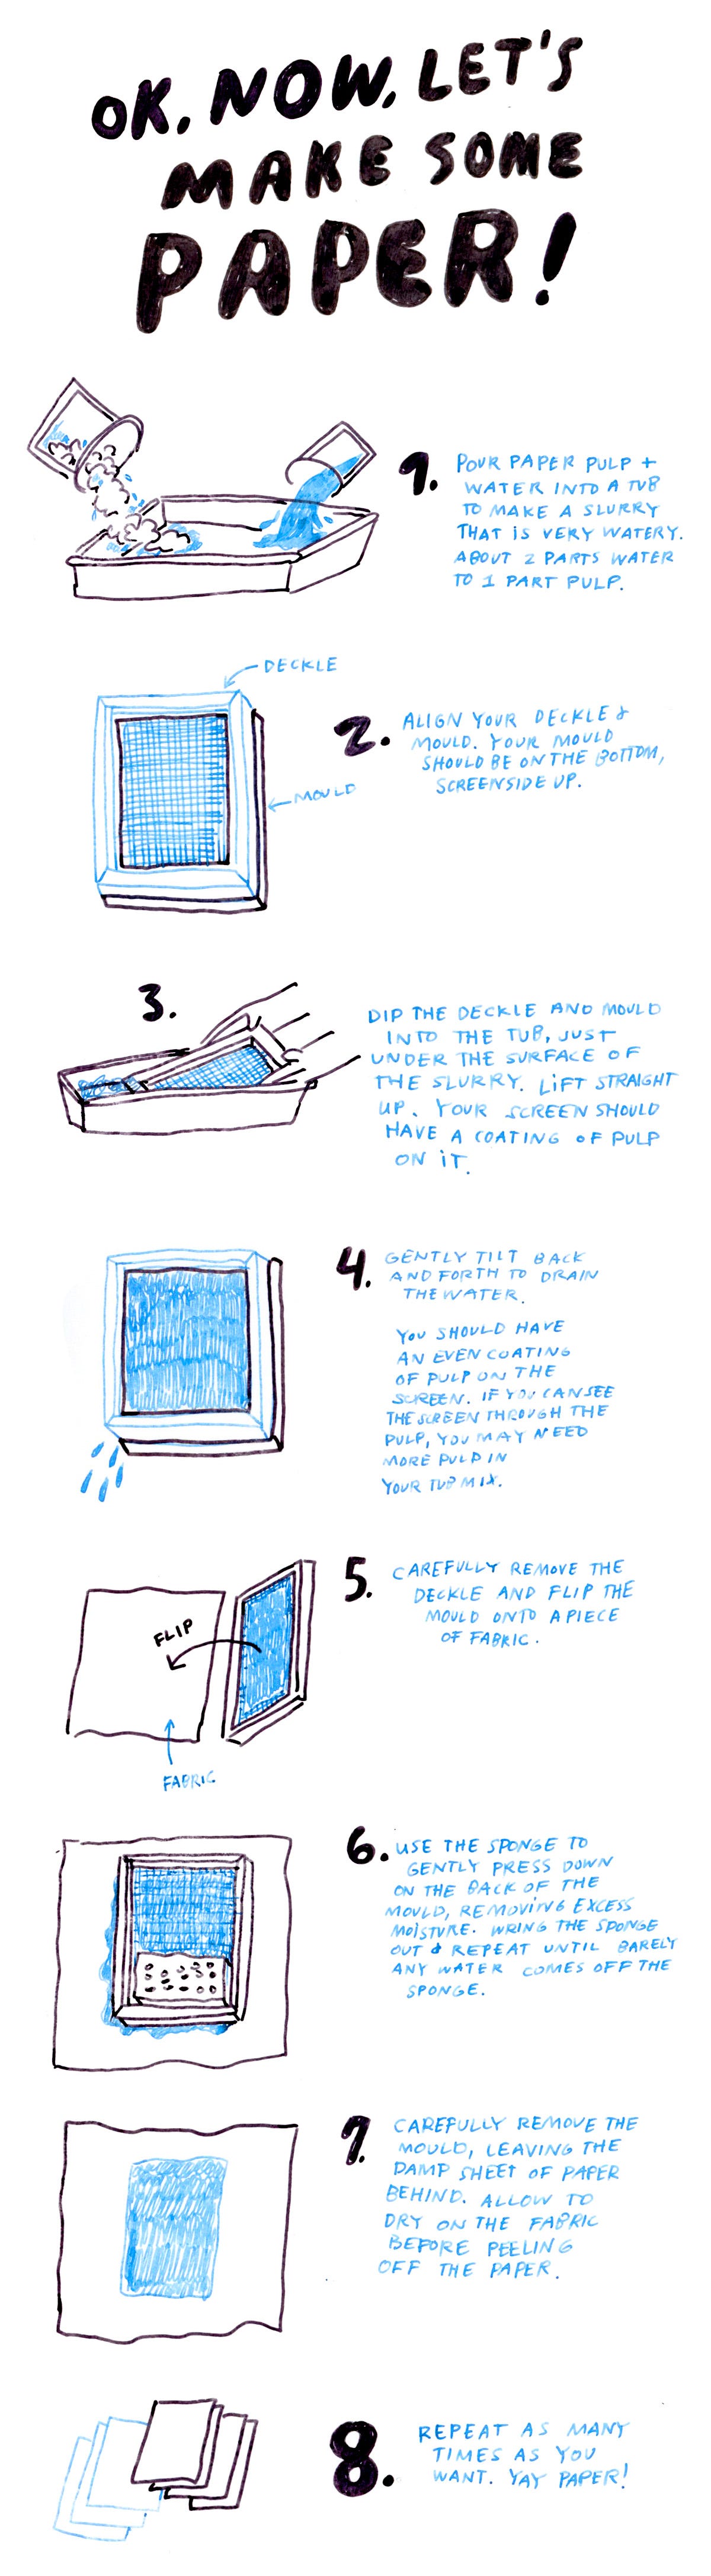 OK, NOW, LET'S
MAKE SOME
PAPER!
1. POUR PAPER PULP +
WATER INTO A TUB
TO MAKE A SLURRY
THAT IS VERY WATERY.
ABOUT 2 PARTS WATER
TO 1 PART PULP.
DECKLE
MOULD
2. ALIGN YOUR DECKLE &
MOULD. YOUR MOULD
SHOULD BE ON THE BOTTOM,
SCREENSIDE UP.
3.
DIP THE DECKLE AND MOULD
INTO THE TUB, JUST
UNDER THE SURFACE OF
THE SLURRY. LIFT STRAIGHT
UP. YOUR SCREEN SHOULD
HAVE A COATING OF PULP
ON IT.
4. GENTLY TILT BACK
AND FORTH TO DRAIN
THE WATER.
YOU SHOULD HAVE
AN EVEN COATING
OF PULP ON THE
SCREEN. IF YOU CAN SEE
THE SCREEN THROUGH THE
PULP, YOU MAY NEED
MORE PULP IN
YOUR TUB MIX.
5. CAREFULLY REMOVE THE
DECKLE AND FLIP THE
MOULD ONTO A PIECE
OF FABRIC.
FLIP
FABRIC
6. USE THE SPONGE TO
GENTLY PRESS DOWN
ON THE BACK OF THE
MOULD, REMOVING EXCESS
MOISTURE. WRING THE SPONGE
OUT & REPEAT UNTIL BARELY
ANY WATER COMES OFF THE
SPONGE.
7. CAREFULLY REMOVE THE
MOULD, LEAVING THE
DAMP SHEET OF PAPER
BEHIND. ALLOW TO
DRY ON THE FABRIC
BEFORE PEELING
OFF THE PAPER.
8. REPEAT AS MANY
TIMES AS YOU
WANT. YAY PAPER!